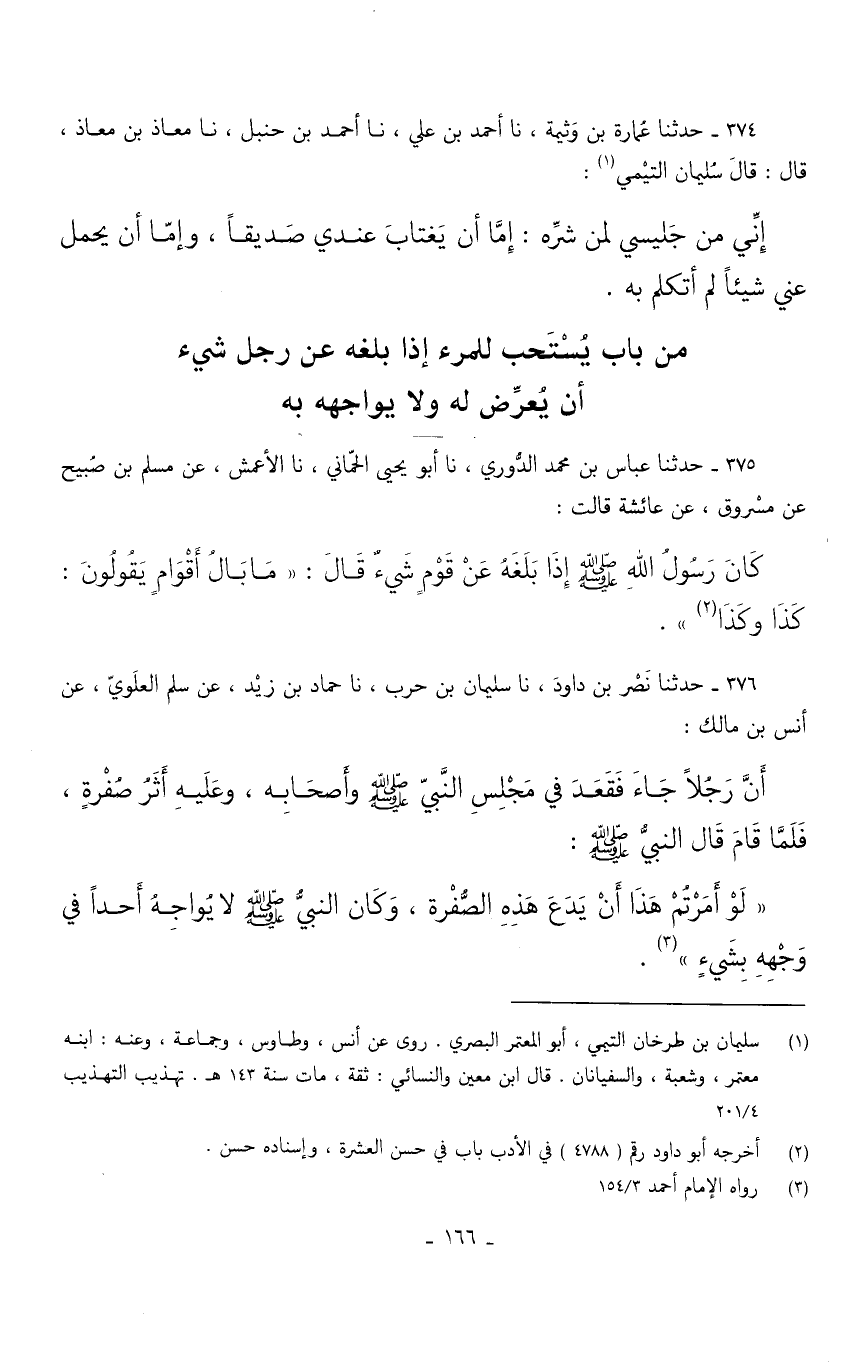 ٣٧٤ ـ حدثنا عُمارة بن وَثيمة ، نا أحمد بن علي ، نـا أحمـد بن حنبل ، نـا معـاذ بن معـاذ ،
قال : قالَ سُليمان التيْمي(١) :
إنِّي من جَليسي لمن شرِّه : إمَّا أن يَغتابَ عنـدي صَـديقـاً ، وإمّـا أن يحمل
عني شيئاً لم أتكلم به .
من باب يُسْتَحب للمرء إذا بلغه عن رجل شيء
أن يُعرِّض له ولا يواجهه به
٣٧٥ ـ حدثنا عباس بن محمد الدُّوري ، نا أبو يحيى الحمّاني ، نا الأعمش ، عن مسلم بن صُبيح
عن مسْروق ، عن عائشة قالت :
كَانَ رَسُولُ اللهِ ﷺ إِذَا بَلَغَهُ عَنْ قَوْمٍ شَيءٌ قَـالَ : « مَـابَـالُ أَقْوَامٍ يَقُولُونَ :
كَذَا وكَذَا(٢) » .
٣٧٦ ـ حدثنا نَصْر بن داودَ ، نا سليمان بن حرب ، نا حماد بن زيْد ، عن سلم العلَويّ ، عن
أنس بن مالك :
أَنَّ رَجُلاً جَـاءَ فَقَعَـدَ في مَجْلِسِ النَّبيّ ﷺ وأَصحَـابِـه ، وعَلَيـهِ أَثَرُ صُفْرةٍ ،
فَلَمَّا قَامَ قَال النبيُّ ﷺ :
« لَوْ أَمَرْتُمْ هَذَا أَنْ يَدَعَ هَذِهِ الصُّفْرة ، وَكَان النبيُّ ﷺ لا يُواجِـهُ أَحـداً في
وَجْهِهِ بِشَيءٍ »(٣) .
(١) سليمان بن طرخان التيمي ، أبو المعتمر البصري . روى عن أنس ، وطـاوس ، وجمـاعـة ، وعنـه : ابنـه
معتمر ، وشعبة ، والسفيانان . قال ابن معين والنسائي : ثقة ، مات سنة ١٤٣ هـ . تهـذيب التهـذيب
٢٠١/٤
(٢) أخرجه أبو داود رقم ( ٤٧٨٨ ) في الأدب باب في حسن العشرة ، وإسناده حسن .
(٣) رواه الإمام أحمد ١٥٤/٣
ـ ١٦٦ ـ